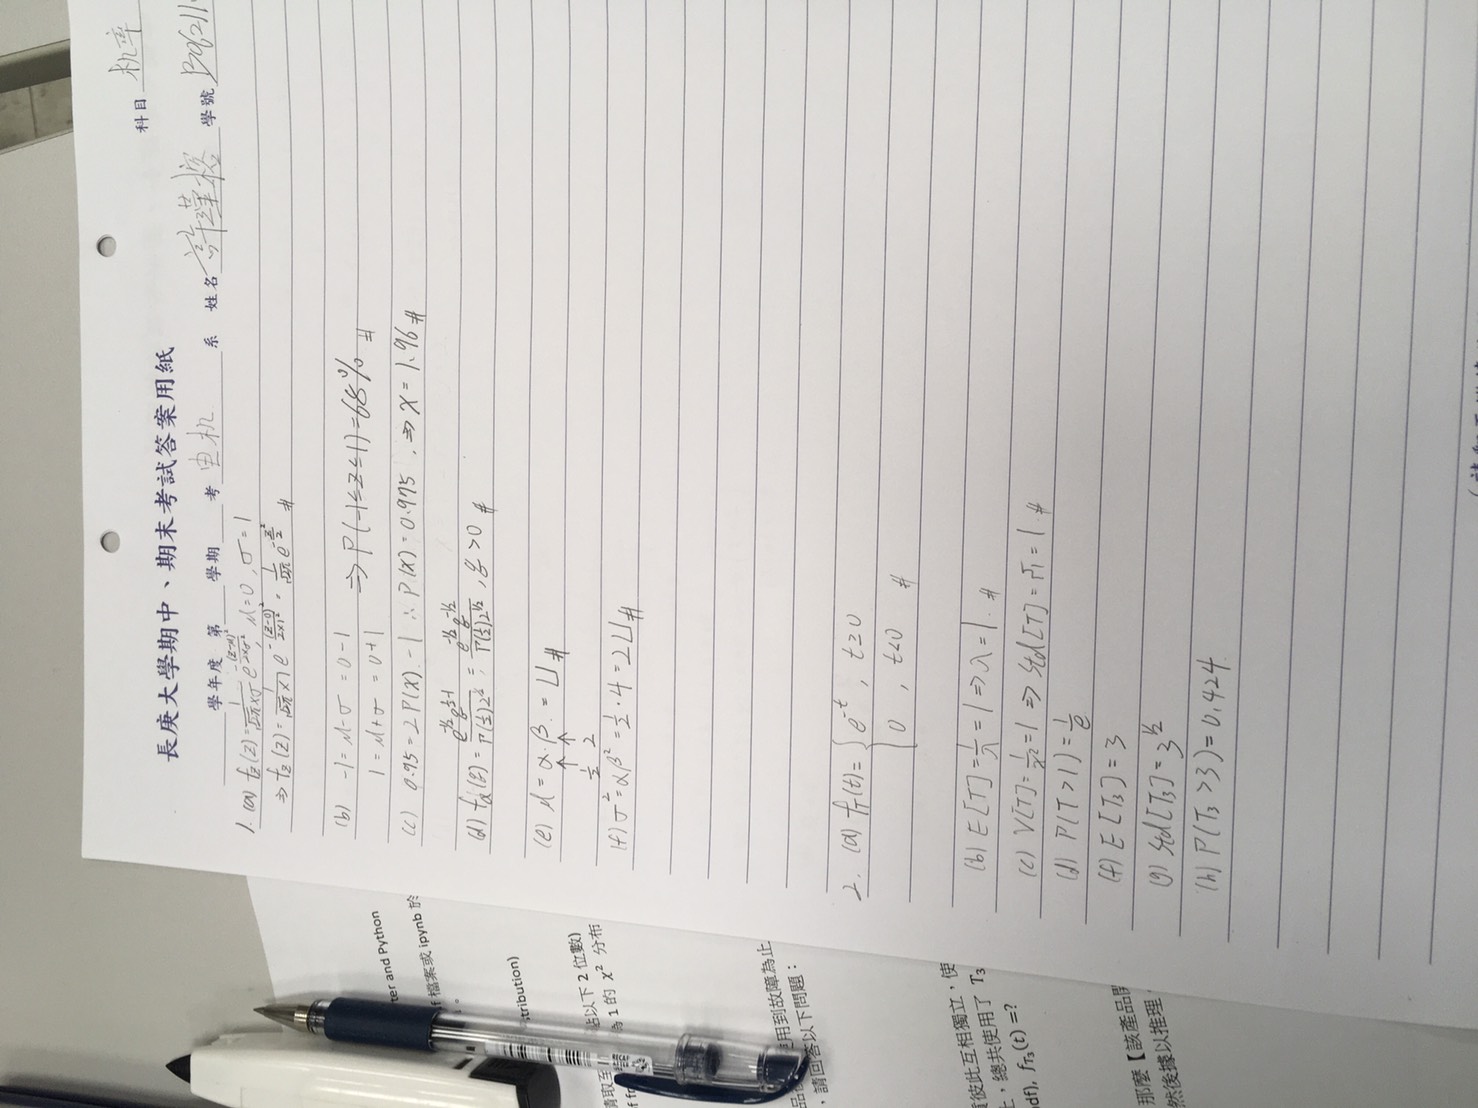 科目 机率
長庚大學期中、期末考試答案用紙
學年度 第 學期 考 电机 系 姓名 許瑾榕 學號 B06211
1. (a) f_Z(z)=1/(√2π×σ) e^{-(z-μ)²/2×σ²}, μ=0, σ=1
⇒ f_Z(z)=1/(√2π×1) e^{-(z-0)²/2×1²} = 1/√2π e^{-z²/2} #
(b) -1=μ-σ =0-1
1=μ+σ =0+1
⇒ P(-1≤z≤1)=68% #
(c) 0.95=2P(x)-1 ∴P(x)=0.975 ⇒ x=1.96 #
(d) f_Q(q)= e^{-1/2}q^{1/2-1}/Γ(1/2)2^{1/2} = e^{-1/2}q^{-1/2}/Γ(1/2)2^{1/2}, q>0 #
(e) μ=α·β.=1 #
↑ ↑
1/2 2
(f) σ²=αβ²=1/2·4=2 #
2. (a) f_T(t)={ e^{-t}, t≥0
0 , t<0 #
(b) E[T]=1/λ=1⇒λ=1. #
(c) V[T]=1/λ²=1 ⇒ Std[T]=√1=1. #
(d) P(T>1)=1/e
(f) E[T₃]=3
(g) Std[T₃]=3^{1/2}
(h) P(T₃>3)=0.424
ter and Python
f 檔案或 ipynb 於
stribution)
點以下 2 位數)
為 1 的 χ² 分布
使用到故障為止
，請回答以下問題：
彼此互相獨立，使
，總共使用了 T₃
df), f_{T₃}(t) =?
那麼【該產品開
然後據以推理